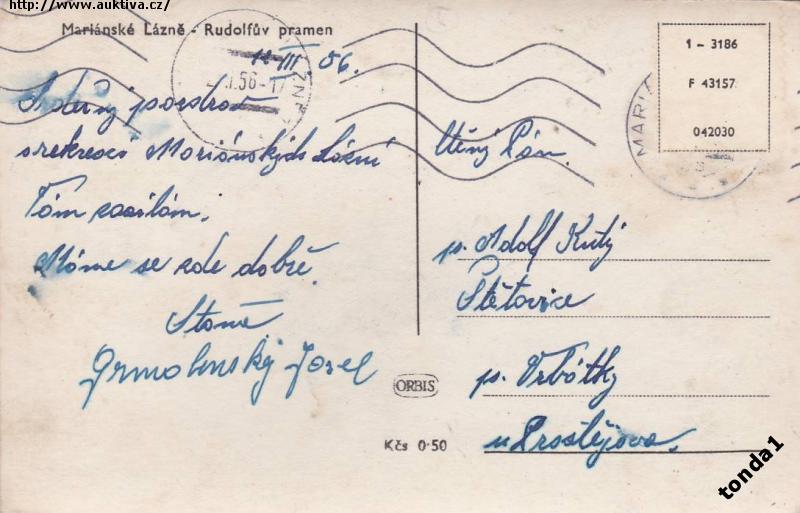 http://www.auktiva.cz/
Mariánské Lázně - Rudolfův pramen
12 III. 56.
.I.56-17
Srdečný pozdrav
s rekreací Mariánských Lázní
Vám zasílám.
Máme se zde dobře.
Grmolenský Josef
Ctěný Pán.
p. Adolf Kutý
Stětovice
p. Vrbátky
u Prostějova.
ORBIS
Kčs 0·50
1 - 3186
F 43157
042030
MARI
tonda1